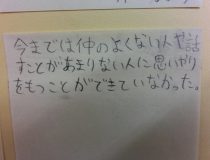 今までは仲のよくない人や話
すことがあまりない人に思いやり
をもつことができていなかった。